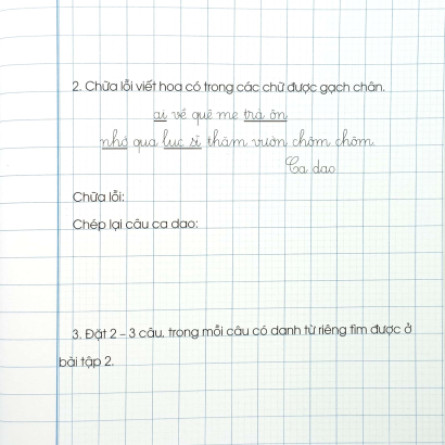 2. Chữa lỗi viết hoa có trong các chữ được gạch chân.
ai về quê mẹ trà ôn
nhớ qua lục sĩ thăm vườn chôm chôm
Ca dao
Chữa lỗi:
Chép lại câu ca dao:
3. Đặt 2 – 3 câu, trong mỗi câu có danh từ riêng tìm được ở
bài tập 2.